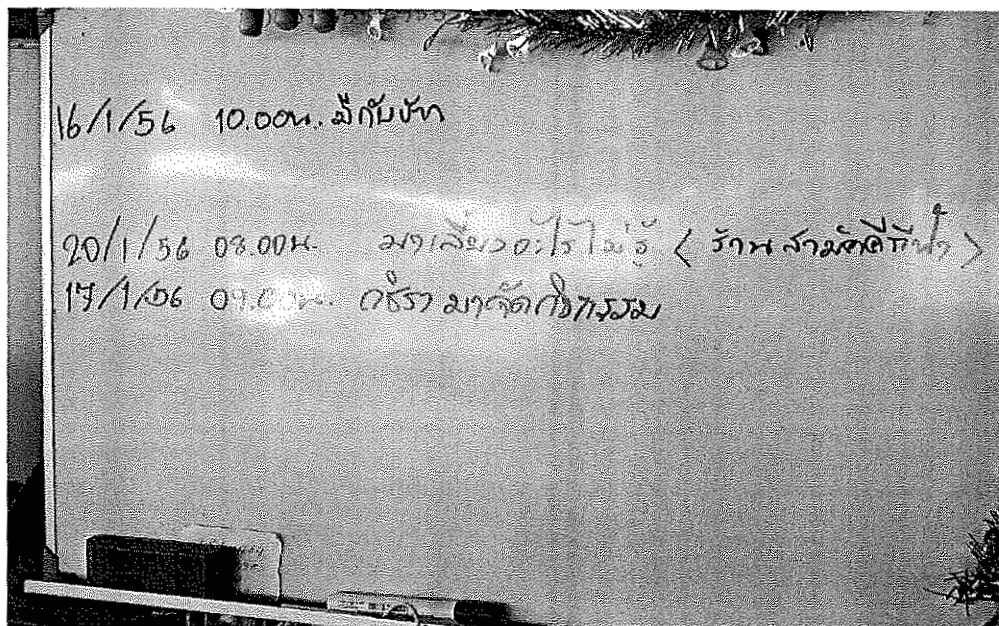 16/1/56 10.00น. มีกับข้า
20/1/56 08.00น. มาเลี้ยงอะไรไม่รู้ < ร้านสามัคคี >
17/1/56 09.00น. มาจัดกิจกรรม